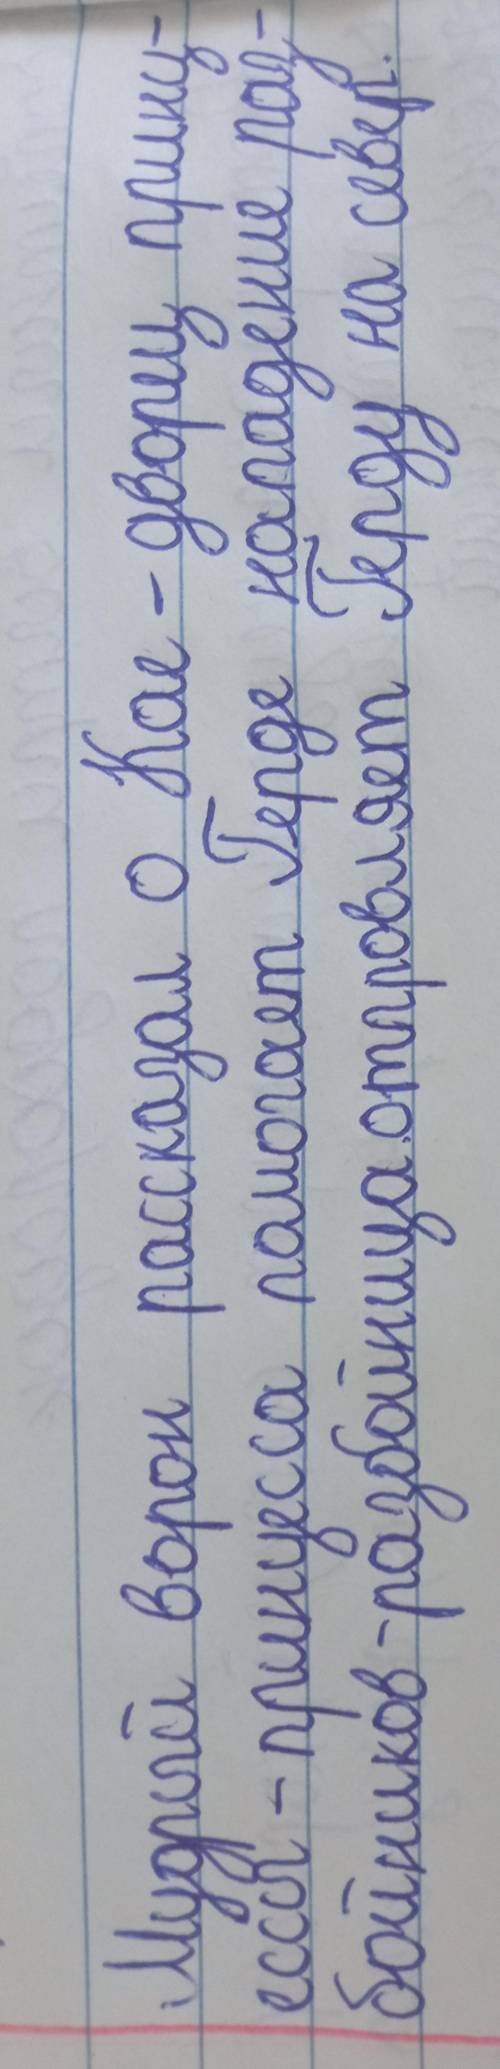 Мудрый ворон рассказал о Кае - дворец принц-
ессы - принцесса памагает Герде нападение раз-
бойников - разбойница.отправляет Герду на север.